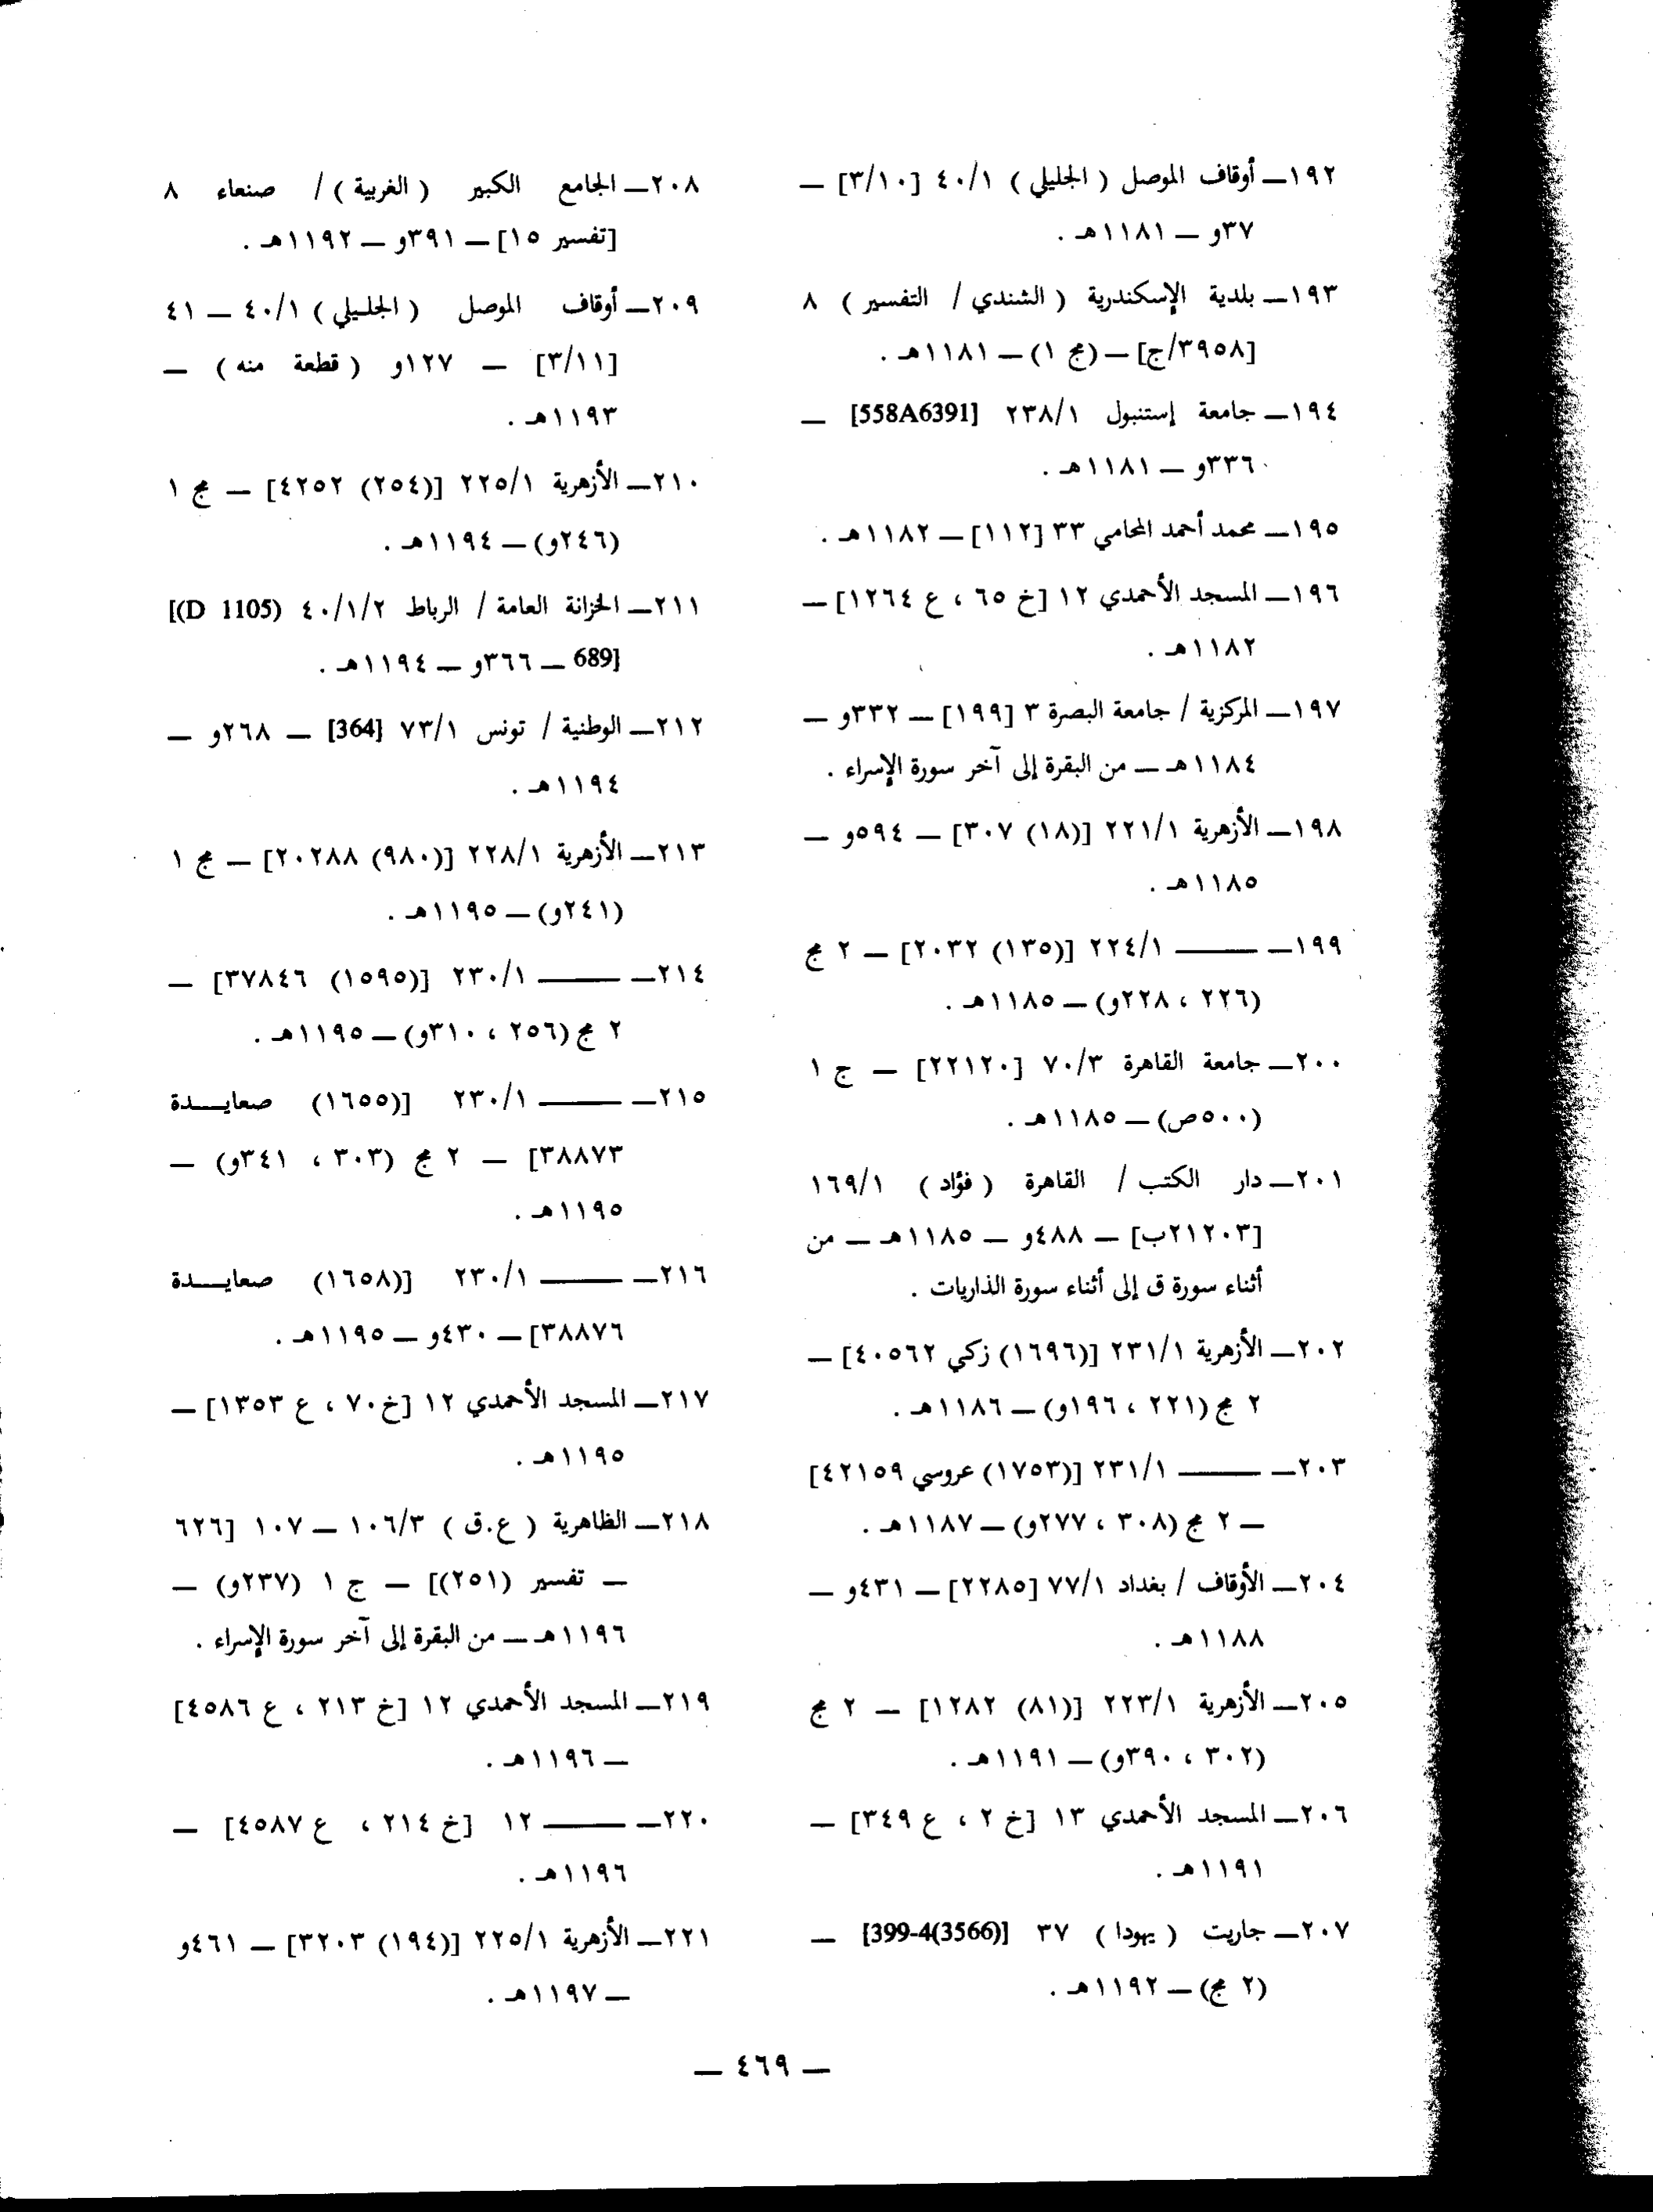 ١٩٢ــ أوقاف الموصل ( الجليلي ) ٤٠/١ [٣/١٠] ــ
٣٧و ــ ١١٨١هـ .
١٩٣ــ بلدية الإسكندرية ( الشندي / التفسير ) ٨
[٣٩٥٨/ج] ــ (مج ١) ــ ١١٨١هـ .
١٩٤ــ جامعة إستنبول ٢٣٨/١ [558A6391] ــ
٣٣٦و ــ ١١٨١هـ .
١٩٥ــ محمد أحمد المحامي ٣٣ [١١٢] ــ ١١٨٢هـ .
١٩٦ــ المسجد الأحمدي ١٢ [خ ٦٥ ، ع ١٢٦٤] ــ
١١٨٢هـ .
١٩٧ــ المركزية / جامعة البصرة ٣ [١٩٩] ــ ٣٣٢و ــ
١١٨٤هـ ــ من البقرة إلى آخر سورة الإسراء .
١٩٨ــ الأزهرية ٢٢١/١ [(١٨) ٣٠٧] ــ ٥٩٤و ــ
١١٨٥هـ .
١٩٩ــ ـــــــ ٢٢٤/١ [(١٣٥) ٢٠٣٢] ــ ٢ مج
(٢٢٦ ، ٢٢٨و) ــ ١١٨٥هـ .
٢٠٠ــ جامعة القاهرة ٧٠/٣ [٢٢١٢٠] ــ ج ١
(٥٠٠ص) ــ ١١٨٥هـ .
٢٠١ــ دار الكتب / القاهرة ( فؤاد ) ١٦٩/١
[٢١٢٠٣ب] ــ ٤٨٨و ــ ١١٨٥هـ ــ من
أثناء سورة ق إلى أثناء سورة الذاريات .
٢٠٢ــ الأزهرية ٢٣١/١ [(١٦٩٦) زكي ٤٠٥٦٢] ــ
٢ مج (٢٢١ ، ١٩٦و) ــ ١١٨٦هـ .
٢٠٣ــ ـــــــ ٢٣١/١ [(١٧٥٣) عروسي ٤٢١٥٩]
ــ ٢ مج (٣٠٨ ، ٢٧٧و) ــ ١١٨٧هـ .
٢٠٤ــ الأوقاف / بغداد ٧٧/١ [٢٢٨٥] ــ ٤٣١و ــ
١١٨٨هـ .
٢٠٥ــ الأزهرية ٢٢٣/١ [(٨١) ١٢٨٢] ــ ٢ مج
(٣٠٢ ، ٣٩٠و) ــ ١١٩١هـ .
٢٠٦ــ المسجد الأحمدي ١٣ [خ ٢ ، ع ٣٤٩] ــ
١١٩١هـ .
٢٠٧ــ جاريت ( يهودا ) ٣٧ [399-4(3566)] ــ
(٢ مج) ــ ١١٩٢هـ .
٢٠٨ــ الجامع الكبير ( الغربية ) / صنعاء ٨
[تفسير ١٥] ــ ٣٩١و ــ ١١٩٢هـ .
٢٠٩ــ أوقاف الموصل ( الجليلي ) ٤٠/١ ــ ٤١
[٣/١١] ــ ١٢٧و ( قطعة منه ) ــ
١١٩٣هـ .
٢١٠ــ الأزهرية ٢٢٥/١ [(٢٥٤) ٤٢٥٢] ــ مج ١
(٢٤٦و) ــ ١١٩٤هـ .
٢١١ــ الخزانة العامة / الرباط ٤٠/١/٢ [(D 1105)
689] ــ ٣٦٦و ــ ١١٩٤هـ .
٢١٢ــ الوطنية / تونس ٧٣/١ [364] ــ ٢٦٨و ــ
١١٩٤هـ .
٢١٣ــ الأزهرية ٢٢٨/١ [(٩٨٠) ٢٠٢٨٨] ــ مج ١
(٢٤١و) ــ ١١٩٥هـ .
٢١٤ــ ـــــــ ٢٣٠/١ [(١٥٩٥) ٣٧٨٤٦] ــ
٢ مج (٢٥٦ ، ٣١٠و) ــ ١١٩٥هـ .
٢١٥ــ ـــــــ ٢٣٠/١ [(١٦٥٥) صعايــدة
٣٨٨٧٣] ــ ٢ مج (٣٠٣ ، ٣٤١و) ــ
١١٩٥هـ .
٢١٦ــ ـــــــ ٢٣٠/١ [(١٦٥٨) صعايــدة
٣٨٨٧٦] ــ ٤٣٠و ــ ١١٩٥هـ .
٢١٧ــ المسجد الأحمدي ١٢ [خ٧٠ ، ع ١٣٥٣] ــ
١١٩٥هـ .
٢١٨ــ الظاهرية ( ع.ق ) ١٠٦/٣ ــ ١٠٧ [٦٢٦
ــ تفسير (٢٥١)] ــ ج ١ (٢٣٧و) ــ
١١٩٦هـ ــ من البقرة إلى آخر سورة الإسراء .
٢١٩ــ المسجد الأحمدي ١٢ [خ ٢١٣ ، ع ٤٥٨٦]
ــ ١١٩٦هـ .
٢٢٠ــ ـــــــ ١٢ [خ ٢١٤ ، ع ٤٥٨٧] ــ
١١٩٦هـ .
٢٢١ــ الأزهرية ٢٢٥/١ [(١٩٤) ٣٢٠٣] ــ ٤٦١و
ــ ١١٩٧هـ .
ــ ٤٦٩ ــ